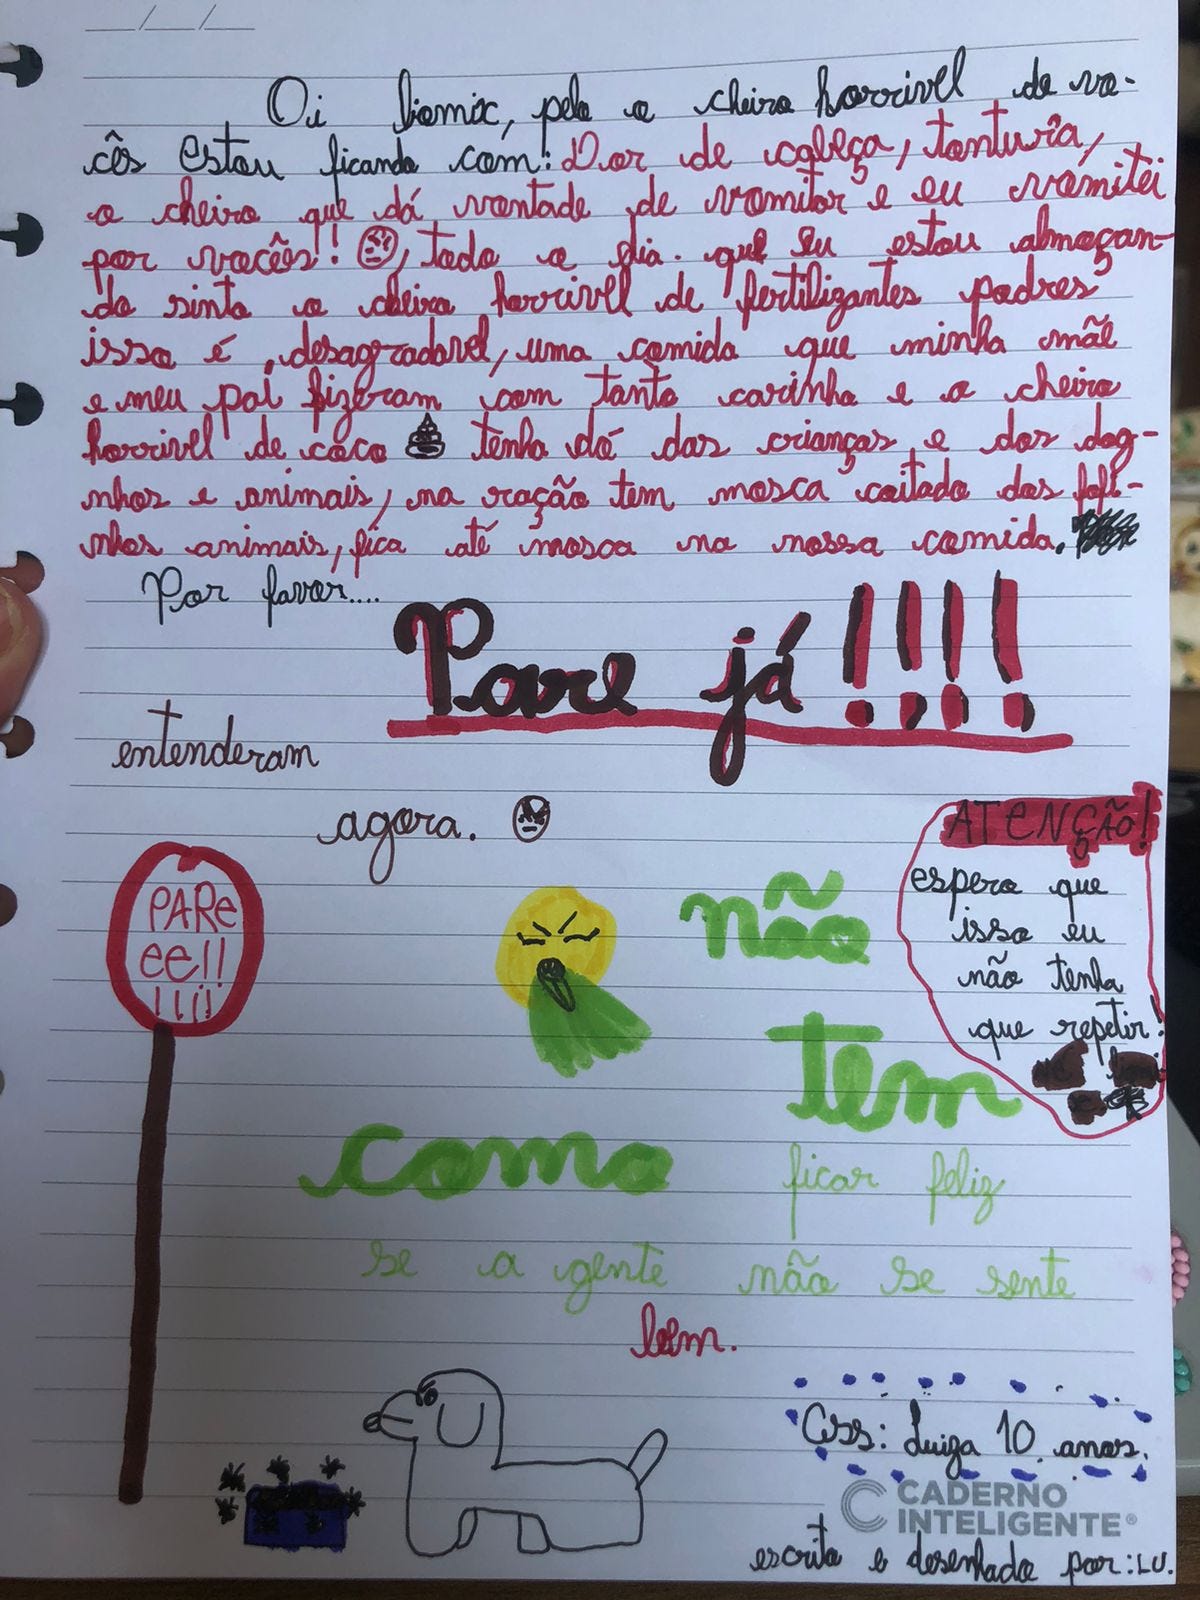 __/__/__
Oi biomix, pelo o cheiro horrivel de vo-
cês estou ficando com: Dor de cabeça, tonturia,
o cheiro que dá vontade de vomitar e eu vomitei
por vocês!! , todo o dia. que eu estou almoçan-
do sinto o cheiro horrivel de fertilizantes podres
isso é desagradavel, uma comida que minha mãe
e meu pai fizeram com tanto carinho e o cheiro
horrivel de coco 💩 tenha dó das crianças e dos dog-
nhos e animais, na ração tem mosca coitado dos fofi-
nhos animais, fica até mosca na nossa comida.
Por favor....
Pare já!!!!
entenderam
agora.
ATENÇÃO!
espero que
isso eu
não tenha
que repetir!
PARe
ee!!
!!!!
não
tem
como ficar feliz
se a gente não se sente
bem.
Ass: Luiza 10 anos.
CADERNO
INTELIGENTE®
escrito e desenhado por: LU.